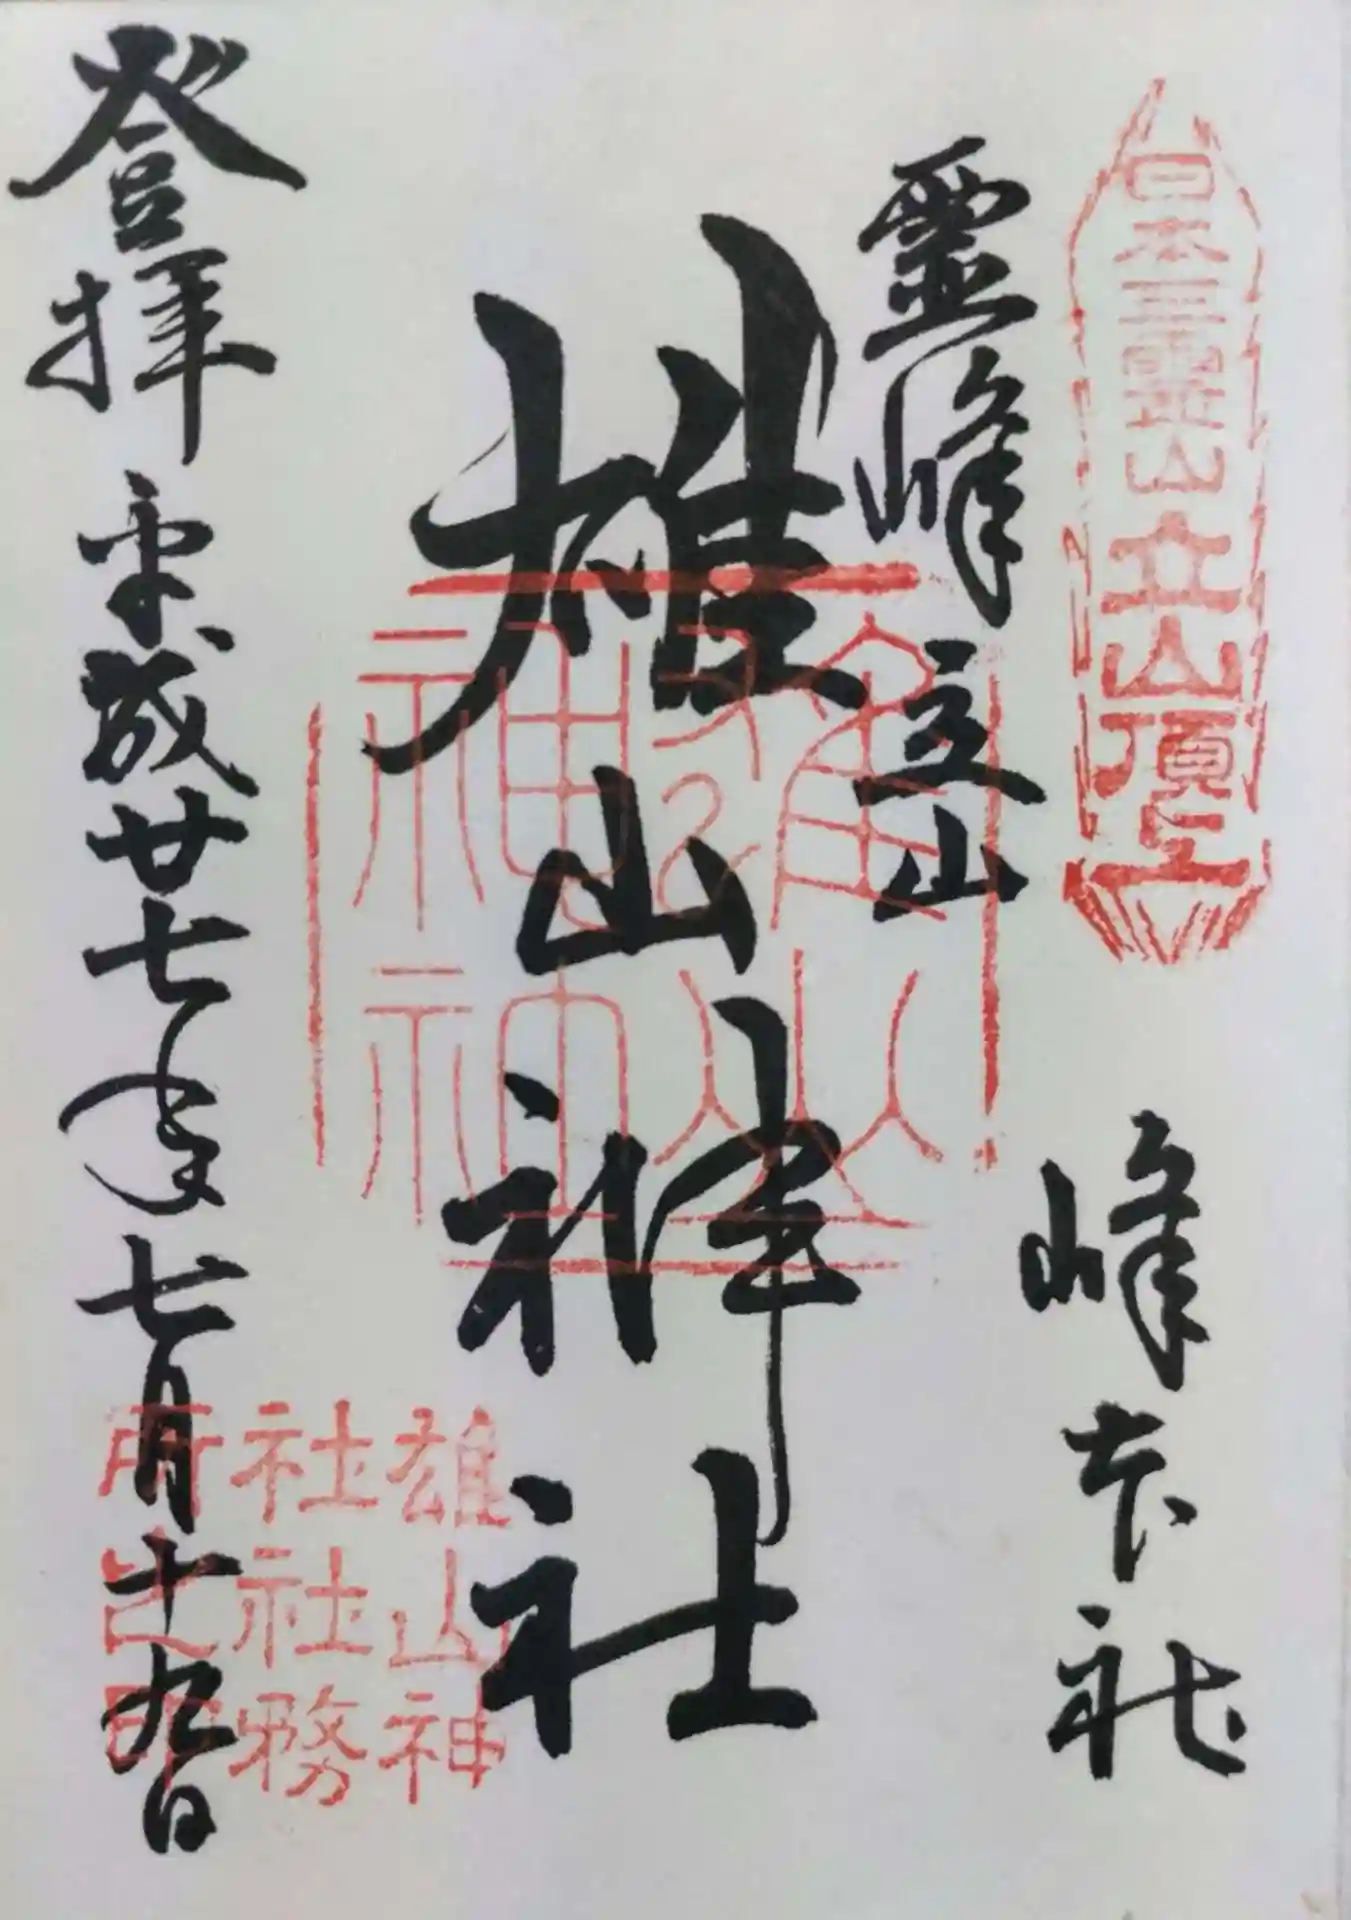 日本三霊山立山頂上
靈峰立山
峰本社
雄山神社
雄山
神神
雄山神
社社務
所之印
登拝 平成廿七年七月十九日